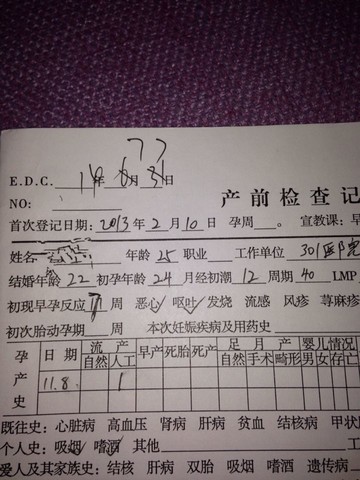 7 7
E.D.C. 14年6月31日
产前检查记
NO:
首次登记日期: 2013年2月10日 孕周 。 宣教课: 早
姓名 年龄 25 职业 工作单位 301医院
结婚年龄 22 初孕年龄 24 月经初潮 12 周期 40 LMP
初现早孕反应 7 周 恶心 呕吐 发烧 流感 风疹 荨麻疹
初次胎动孕期 周 本次妊娠疾病及用药史
孕产史 日期 流产 早产 死胎 死产 足月产 婴儿情况
自然 人工 自然 手术 畸形 男 女 存 亡
11.8. 1
既往史: 心脏病 高血压 肾病 肝病 贫血 结核病 甲状
个人史: 吸烟 嗜酒 其他 工
爱人及其家族史: 结核 肝病 双胎 吸烟 嗜酒 遗传病